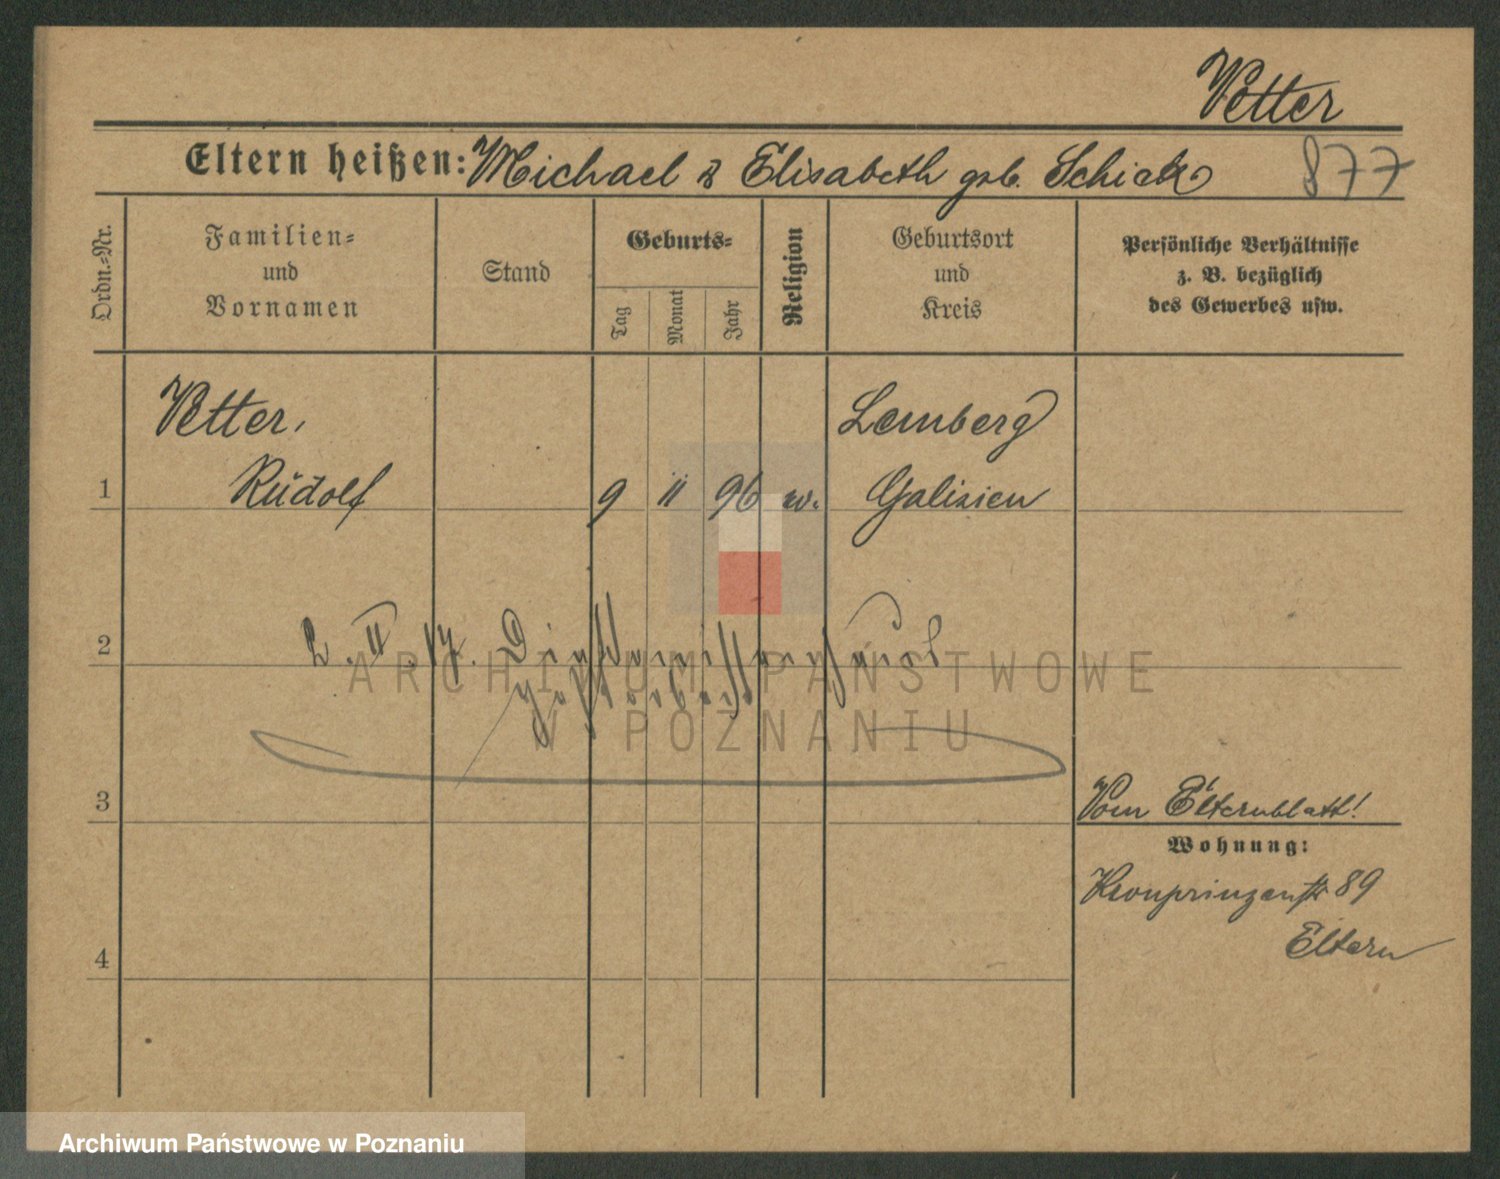 Vetter
Eltern heißen: Michael & Elisabeth geb. Schick
877
Ordn.-Nr.
Familien-
und
Vornamen
Stand
Geburts-
Tag
Monat
Jahr
Religion
Geburtsort
und
Kreis
Persönliche Verhältnisse
z. B. bezüglich
des Gewerbes usw.
Vetter,
Lemberg
1 Rudolf 9 II 96 Galizien
2
2. II. 17. Diakonissenhaus
ARCHIWUM PAŃSTWOWE
W POZNANIU
3
Vom Elternblatt!
Wohnung:
Kronprinzenstr 89
Eltern
4
Archiwum Państwowe w Poznaniu